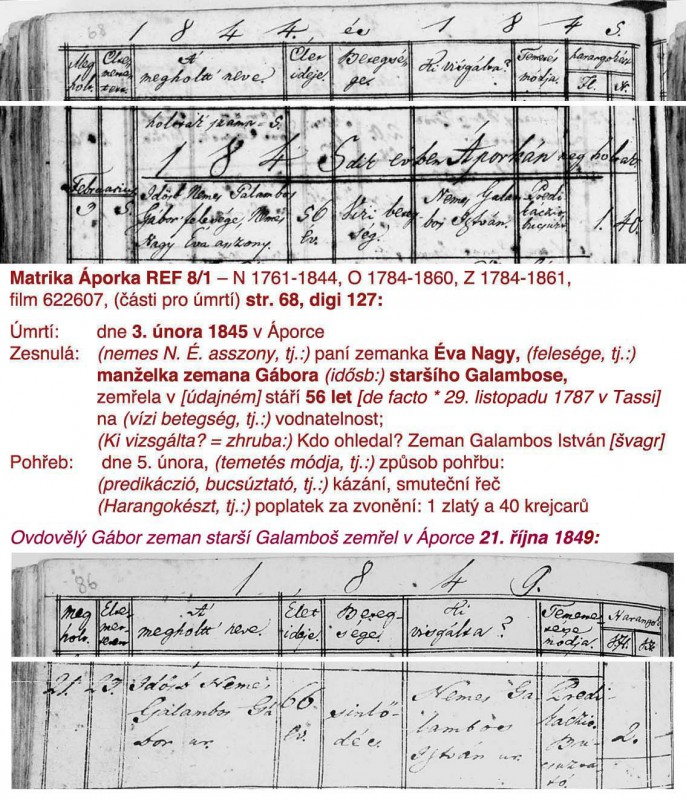 1 8 4 4. év 1 8 4 5.
Meg
holt.
Elte
mette
tett.
A
megholtt neve.
Élet
ideje.
Betegsé-
ge.
Ki visgálta?
Temetés
módja.
harangokért
Ft. Kr.
holtak száma - 5.
1 8 4 5dik evben Áporkán meg holtak.
Februarius
3 5.
Idősb Nemes Galambos
Gábor felesége, Nemes
Nagy Éva aszony.
56
év.
Vizi beteg
ség.
Nemes Galam
bos István.
Predi
káczio
1. 40.
Matrika Áporka REF 8/1 – N 1761-1844, O 1784-1860, Z 1784-1861,
film 622607, (části pro úmrtí) str. 68, digi 127:
Úmrtí: dne 3. února 1845 v Áporce
Zesnulá: (nemes N. É. asszony, tj.:) paní zemanka Éva Nagy, (felesége, tj.:)
manželka zemana Gábora (idősb:) staršího Galambose,
zemřela v [údajném] stáří 56 let [de facto * 29. listopadu 1787 v Tassi]
na (vízi betegség, tj.:) vodnatelnost;
(Ki vizsgálta? = zhruba:) Kdo ohledal? Zeman Galambos István [švagr]
Pohřeb: dne 5. února, (temetés módja, tj.:) způsob pohřbu:
(predikáczió, bucsúztató, tj.:) kázání, smuteční řeč
(Harangokészt, tj.:) poplatek za zvonění: 1 zlatý a 40 krejcarů
Ovdovělý Gábor zeman starší Galamboš zemřel v Áporce 21. října 1849:
1 8 4 9.
meg
holt.
A
megholtt neve.
Élet
ideje.
Beteg-
sége.
Ki
visgálta?
módja.
Harangok
21. 23.
Idősb Nemes
Galambos Gá
bor ur.
66
év.
sinlő-
dés.
Nemes Ga
lambos
István ur.
Predi
káczio
Bu
csuzta
tó.
2. -